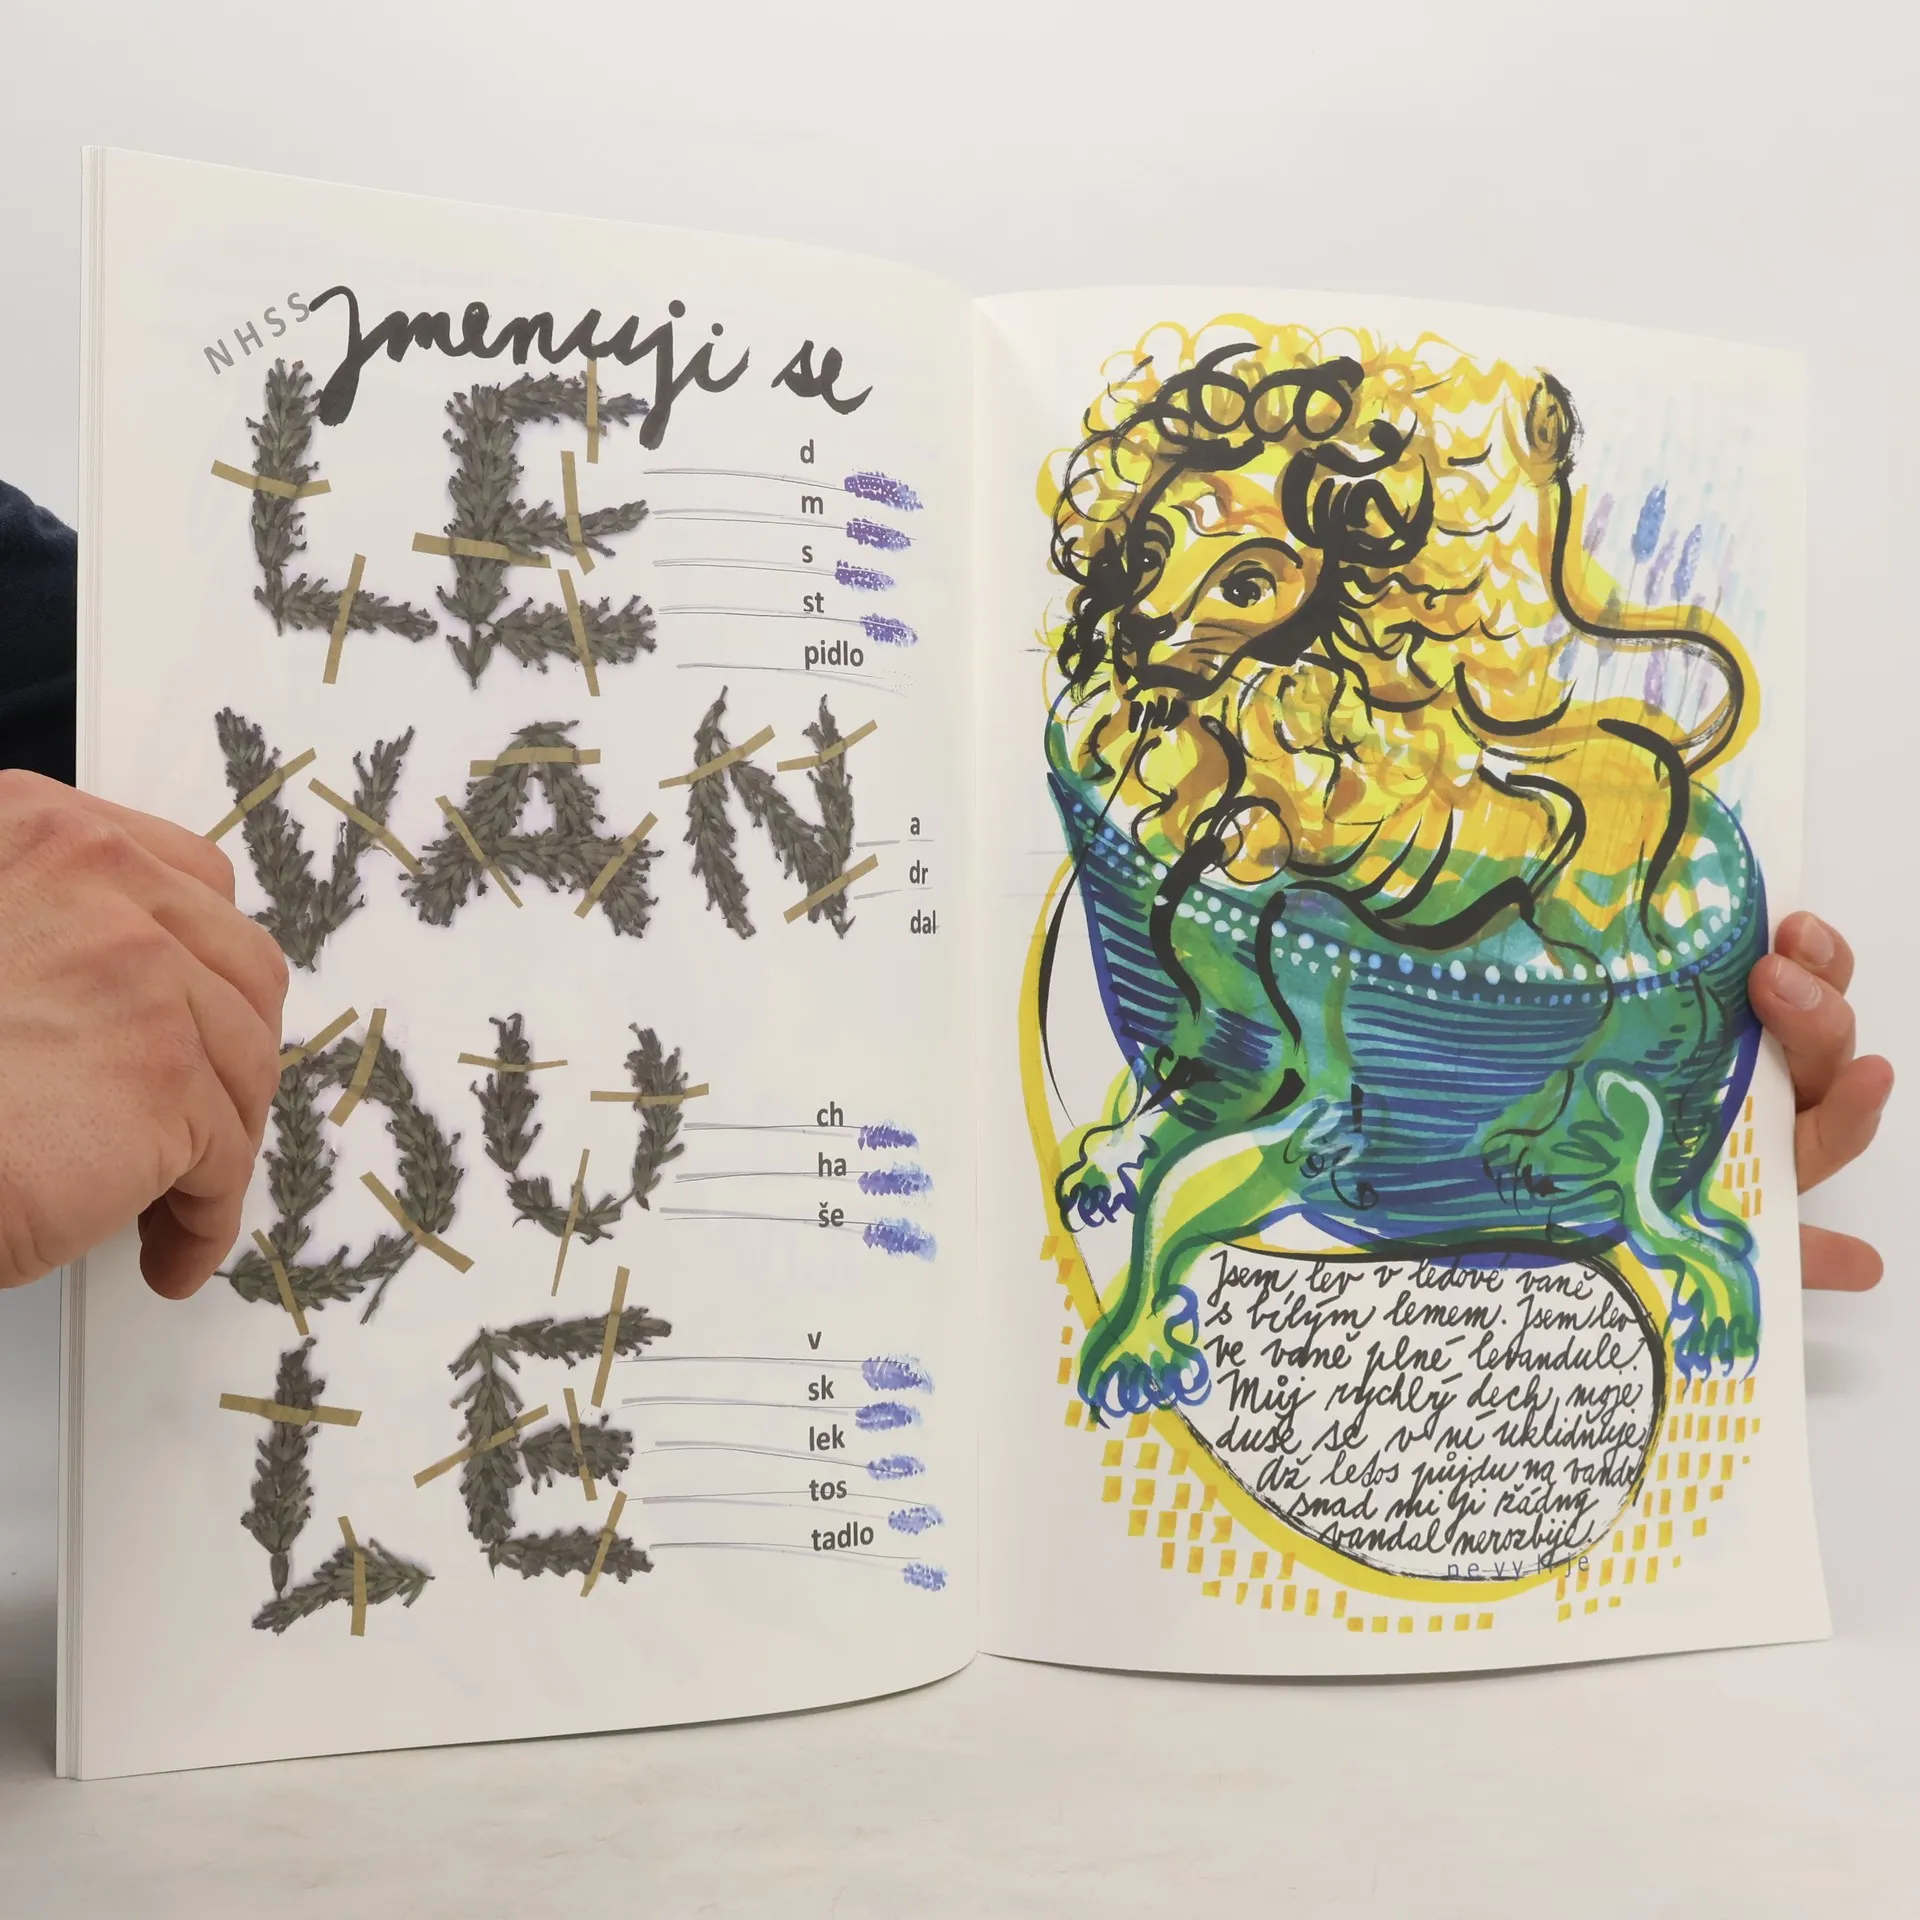 NHSS
Jmenuji se
LE
d
m
s
st
pidlo
VAN
a
dr
dal
DU
ch
ha
še
LE
v
sk
lek
tos
tadlo
Jsem lev v ledové vaně
s bílým lemem. Jsem lev
ve vaně plné levandule.
Můj rychlý dech, moje
duše se v ní uklidňuje.
Až letos půjdu na vandr,
snad mi ji žádný
vandal nerozbije.